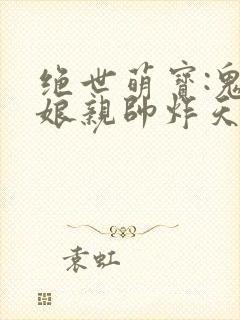 绝世萌寶:鬼
娘親帥炸天
袁虹